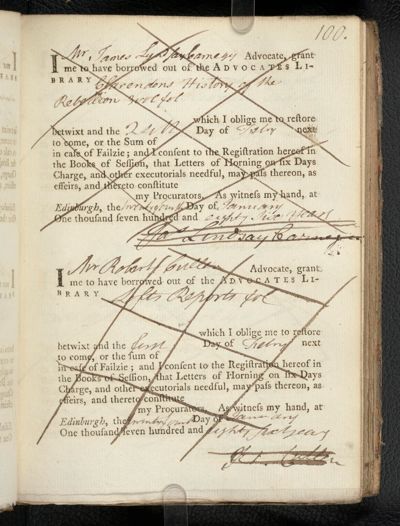 100.
I Mr. James Lindsay Carnegy Advocate, grant
me to have borrowed out of the ADVOCATES LI-
BRARY Clarendons History of the
Rebellion fol
which I oblige me to restore
betwixt and the Day of Febry next
to come, or the Sum of
in caſe of Failzie; and I conſent to the Regiſtration hereof in
the Books of Seſſion, that Letters of Horning on ſix Days
Charge, and other executorials needful, may paſs thereon, as
effeirs, and thereto conſtitute
my Procurators. As witneſs my hand, at
Edinburgh, the Day of January
One thouſand ſeven hundred and eighty years
Jas Lindsay Carnegy
I Mr Robert Cullen Advocate, grant
me to have borrowed out of the ADVOCATES LI-
BRARY Reports fol
which I oblige me to reſtore
betwixt and the first Day of Febry next
to come, or the ſum of
in caſe of Failzie; and I conſent to the Regiſtration hereof in
the Books of Seſſion, that Letters of Horning on ſix Days
Charge, and other executorials needful, may paſs thereon, as
effeirs, and thereto conſtitute
my Procurators. As witneſs my hand, at
Edinburgh, the Day of January
One thouſand ſeven hundred and eighty year
Cullen